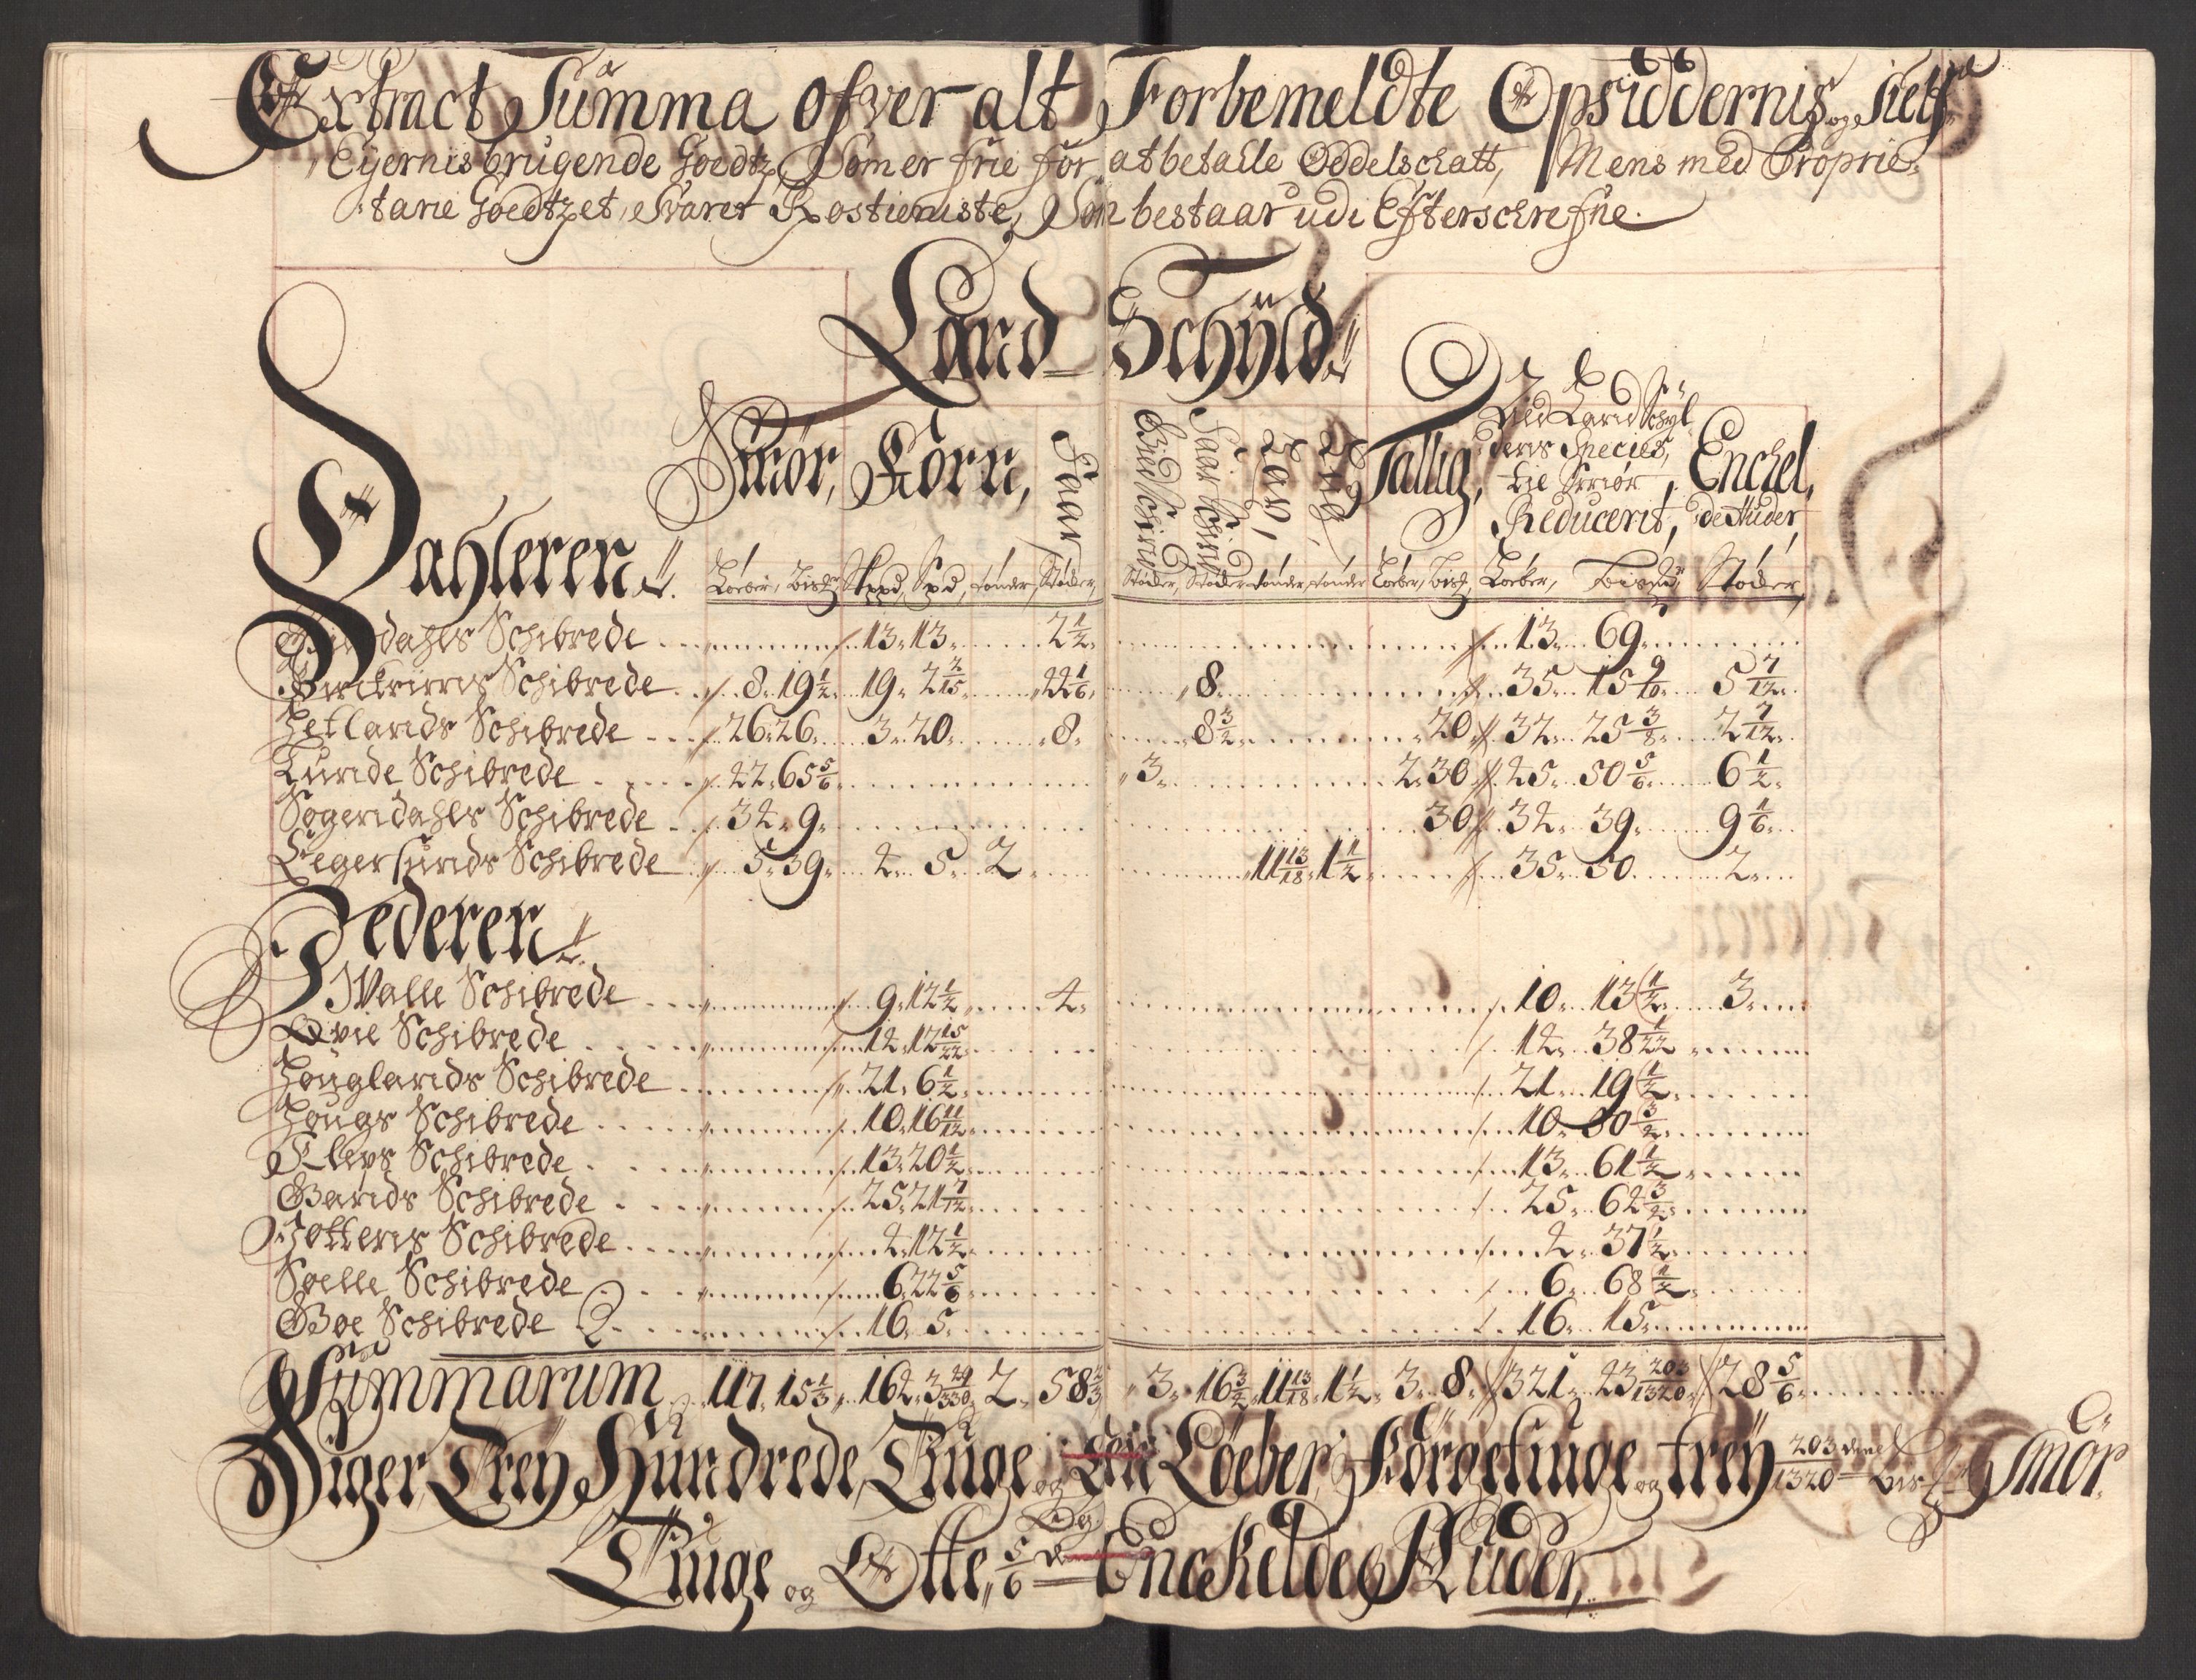 Extract Summa ofver alt Forbemeldte Opsiddernis og Self
Eyernis brugende Goedtz, Som er frie for at betalle Oddelschatt, Mens med Proprie-
tarie Goedtzet, Svarer Rostieniste, Som bestaar udi Efterschrefne.
Land Schÿld
Dahleren
Smør, Korn, Faar Tallig, Ald Land Schyl
derns Species, Enckel,
til Smør,
Reducerit, de Huder,
Løeber, Bisz, Skppd, Spd, tønder, Støder, Støder, Støder tønder, tønder Løeber, Bisz, Løeber, Støder
dahls Schibrede 13. 13. 2 1/2. 13. 69.
Schibrede 8. 19 1/2. 19. 2 2/15. 22 1/6. 8. 35. 15 9/10. 5 7/12.
Hetlands Schibrede 26. 26. 3. 20. 8. 8 3/2. 20 32. 25 3/8. 2 7/12.
Lunde Schibrede 22. 65 5/6. 3. 2. 30 25. 50 5/6. 6 1/2.
Sogendahls Schibrede 32. 9. 30 32. 39. 9 1/6.
Eegersunds Schibrede 5. 39. 2. 5. 2 11 13/18. 1 1/2. 35. 50. 2.
Jederen
Walle Schibrede 9. 12 1/2. 2. 10. 13 1/2. 3.
Qvie Schibrede 12. 17 15/22. 12. 38 1/22
Houglands Schibrede 21. 6 1/2. 21. 19 1/2.
Hougs Schibrede 10. 16 11/12. 10. 50 3/2.
Kleps Schibrede 13. 20 1/2. 13. 61 1/2.
Gands Schibrede 25. 21 7/12. 25. 62 3/2.
Jottens Schibrede 2. 12 1/2. 2. 37 1/2.
Soelle Schibrede 6. 22 5/6. 6. 68 1/2.
Boe Schibrede 16. 5. 16. 15.
Summarum 117. 15 1/3. 162. 3 29/330. 2. 58 2/3 3. 16 3/2. 11 13/18. 1 1/2. 3. 8. 321. 23 203/1320. 28 5/6.
Siger, Trey Hundrede, Tiuge og Løeber, og trey 203/1320 Smør.
Og
Tiuge og Otte, 5/6 Enckelde Huder,